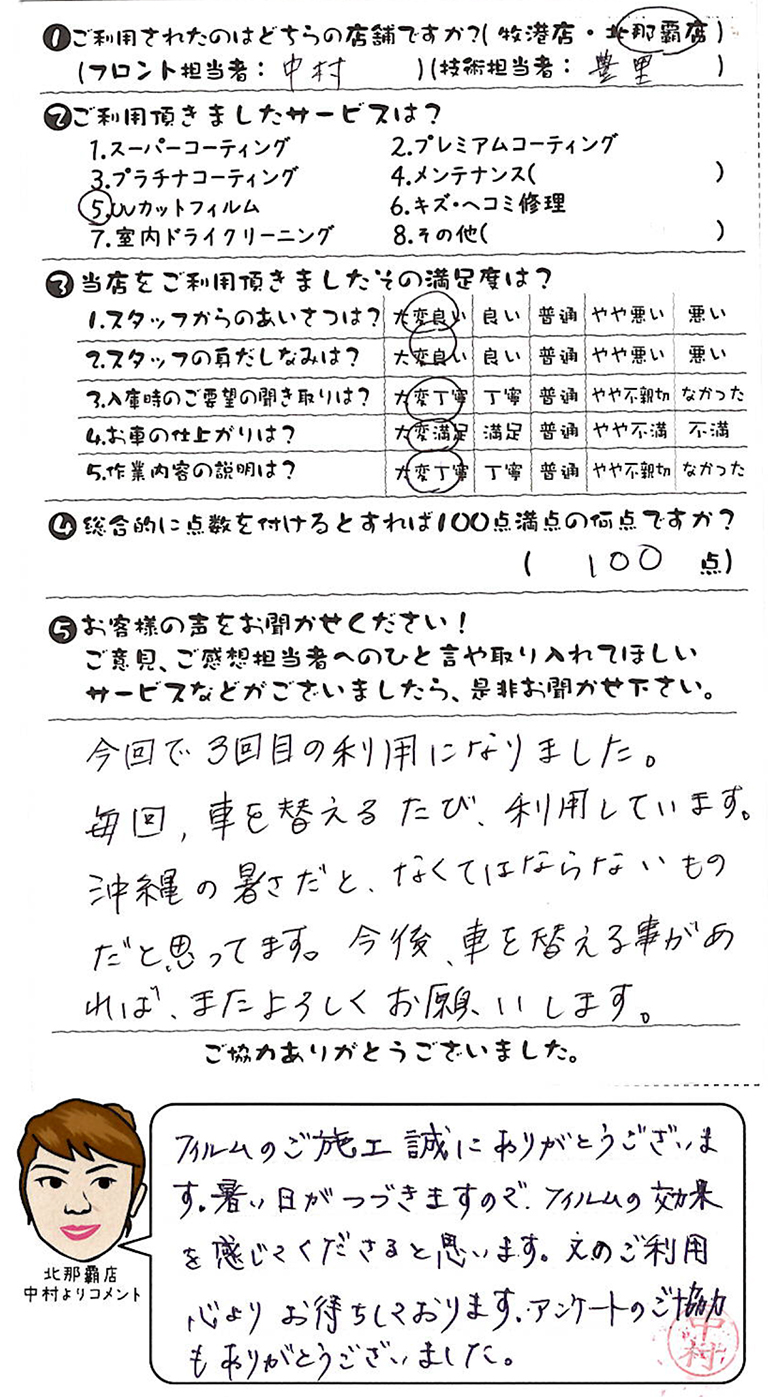 ❶ご利用されたのはどちらの店舗ですか?(牧港店・北那覇店)
(フロント担当者:中村)(技術担当者:豊里)
❷ご利用頂きましたサービスは?
1.スーパーコーティング 2.プレミアムコーティング
3.プラチナコーティング 4.メンテナンス( )
5.UVカットフィルム 6.キズ・ヘコミ修理
7.室内ドライクリーニング 8.その他( )
❸当店をご利用頂きましたその満足度は?
1.スタッフからのあいさつは? 大変良い 良い 普通 やや悪い 悪い
2.スタッフの身だしなみは? 大変良い 良い 普通 やや悪い 悪い
3.入庫時のご要望の聞き取りは? 大変丁寧 丁寧 普通 やや不親切 なかった
4.お車の仕上がりは? 大変満足 満足 普通 やや不満 不満
5.作業内容の説明は? 大変丁寧 丁寧 普通 やや不親切 なかった
❹総合的に点数を付けるとすれば100点満点の何点ですか?
( 100 点)
❺お客様の声をお聞かせください!
ご意見、ご感想担当者へのひと言や取り入れてほしい
サービスなどがございましたら、是非お聞かせ下さい。
今回で3回目の利用になりました。
毎回,車を替えるたび、利用しています。
沖縄の暑さだと、なくてはならないもの
だと思ってます。今後、車を替える事があ
れば、またよろしくお願いします。
ご協力ありがとうございました。
フィルムのご施工誠にありがとうございま
す。暑い日がつづきますので、フィルムの効果
を感じてくださると思います。又のご利用
心よりお待ちしております。アンケートのご協力
もありがとうございました。
中村
北那覇店
中村よりコメント